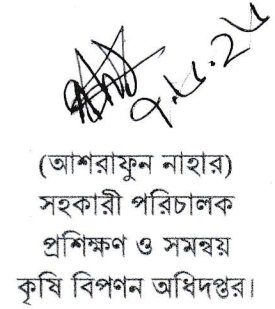 (আশরাফুন নাহার)
সহকারী পরিচালক
প্রশিক্ষণ ও সমন্বয়
কৃষি বিপণন অধিদপ্তর।